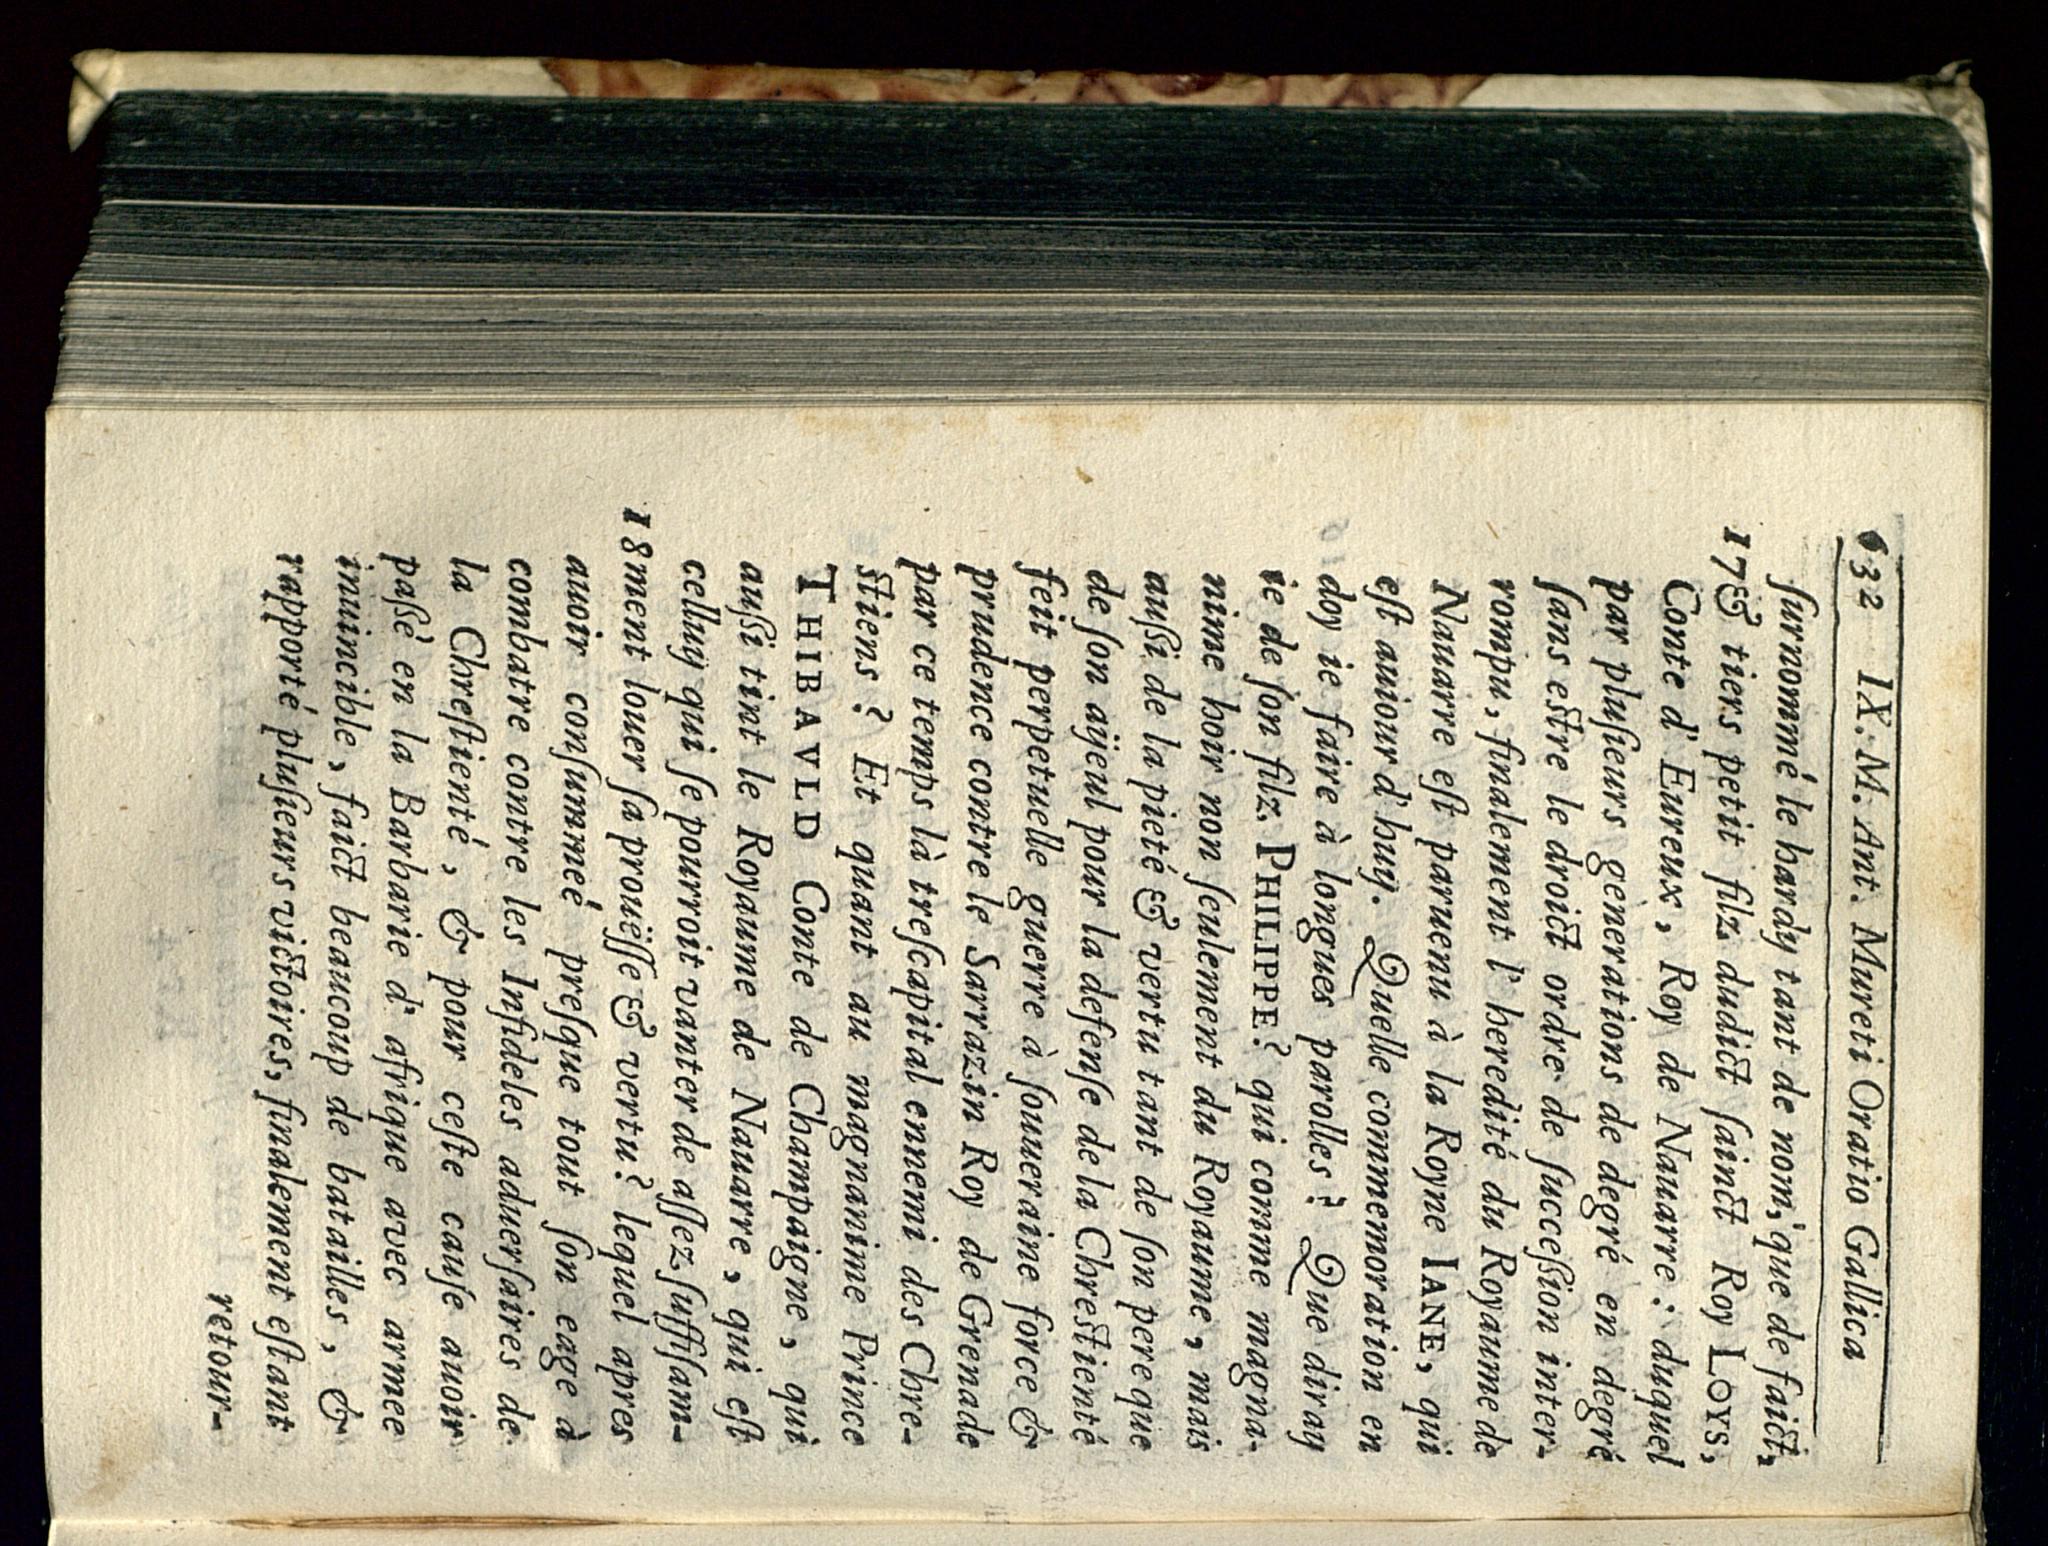 632 IX. M. Ant. Mureti Oratio Gallica
ſurnommé le hardy tant de nom, que de faict,
17 & tiers petit filz dudict ſainct Roy LOYS,
Conte d'Eureux, Roy de Nauarre: duquel
par pluſieurs generations de degré en degré
ſans eſtre le droict ordre de ſucceſsion inter-
rompu, finalement l'heredité du Royaume de
Nauarre eſt paruenu à la Royne IANE, qui
eſt auiour d'huy. Quelle commemoration en
doy ie faire à longues parolles? Que diray
ie de ſon filz PHILIPPE? qui comme magna-
nime hoir non ſeulement du Royaume, mais
auſsi de la pieté & vertu tant de ſon pere que
de ſon aÿeul pour la defenſe de la Chreſtienté
feit perpetuelle guerre à ſouueraine force &
prudence contre le Sarrazin Roy de Grenade
par ce temps là treſcapital ennemi des Chre-
ſtiens? Et quant au magnanime Prince
THIBAVLD Conte de Champaigne, qui
auſsi tint le Royaume de Nauarre, qui eſt
celluy qui ſe pourroit vanter de aſſez ſuffiſam-
18 ment louer ſa prouëſſe & vertu? lequel apres
auoir conſummeé preſque tout ſon eage à
combatre contre les Infideles aduerſaires de
la Chreſtienté, & pour ceſte cauſe auoir
paſsé en la Barbarie d'afrique avec armee
inuincible, faict beaucoup de batailles, &
rapporté pluſieurs victoires, finalement eſtant
retour-